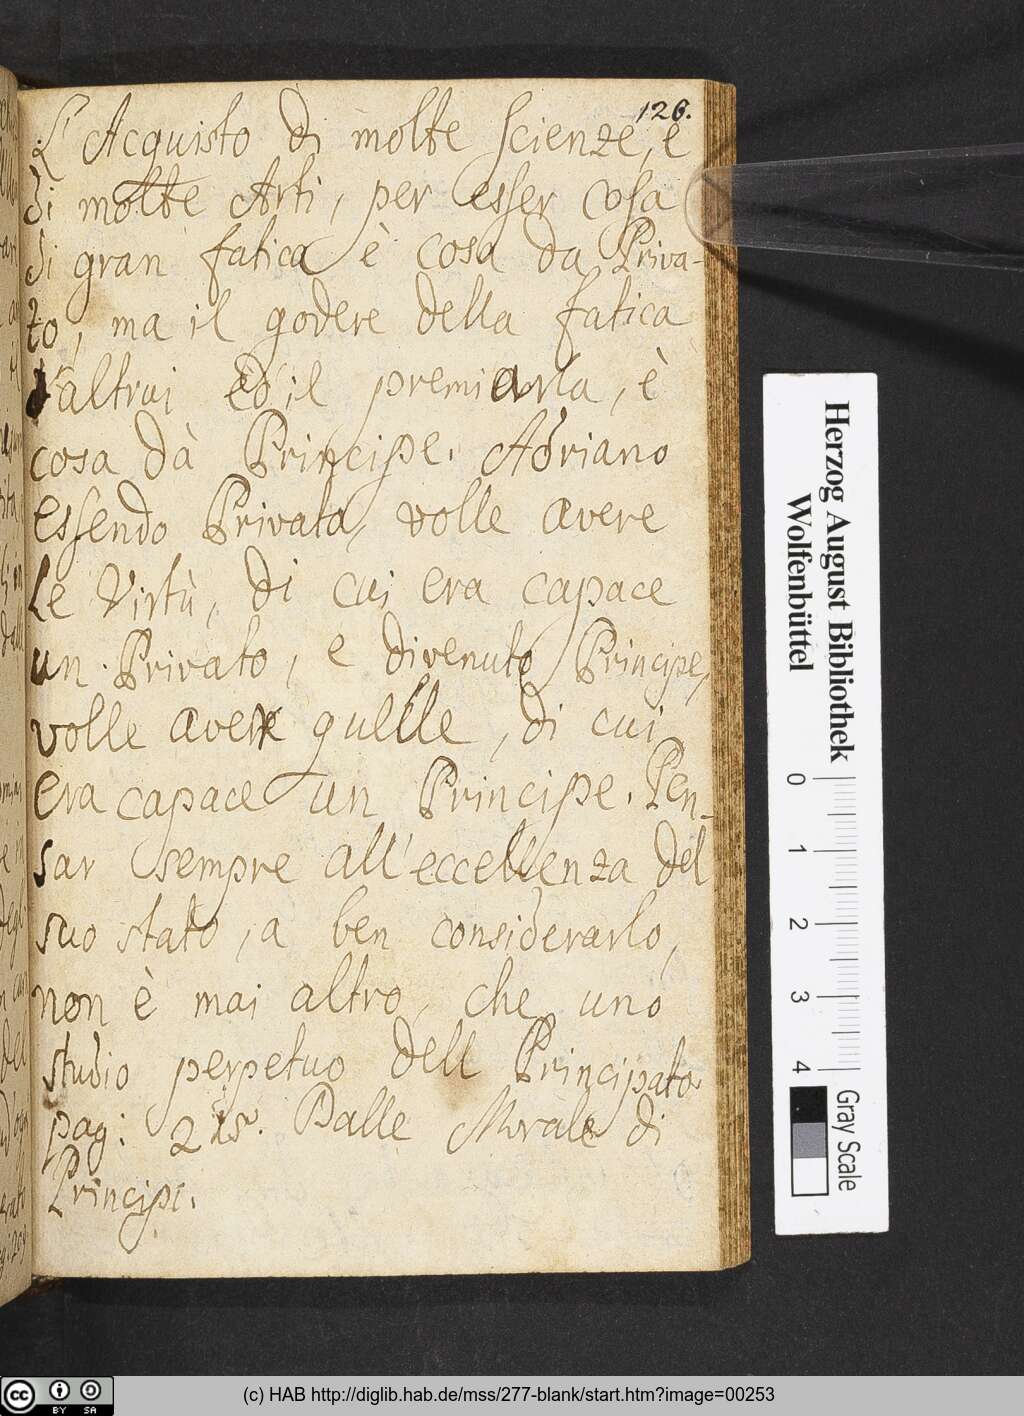 126.
L'Acquisto di molte scienze, e
di molte Arti, per esser cosa
di gran fatica è cosa da Priva-
to, ma il godere della fatica
d'altrui ed il premiarla, è
cosa dà Principe. Adriano
essendo Privato, volle avere
Le Virtù, di cui era capace
un Privato, e divenuto Principe,
volle avere quelle, di cui
era capace un Principe. Pen-
sar sempre all'eccellenza del
suo stato, a ben considerarlo,
non è mai altro, che uno
studio perpetuo dell Principato.
pag: 215. Dalle Morale di
Principi.
Herzog August Bibliothek
Wolfenbüttel
0 1 2 3 4
Gray Scale
cc BY SA
(c) HAB http://diglib.hab.de/mss/277-blank/start.htm?image=00253